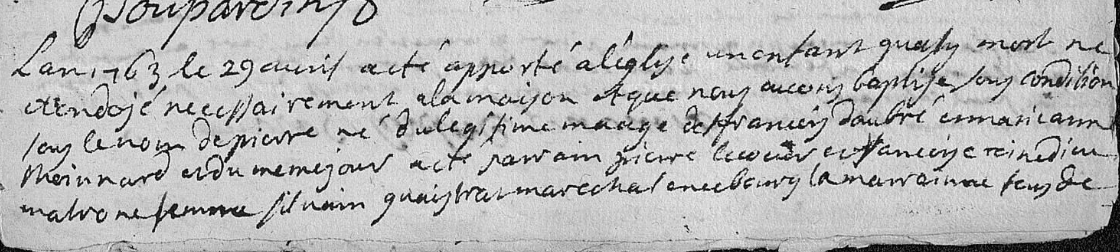 poupardin
Lan 1763 le 29 avril a eté apporté a l'eglise un enfant quasy mort ne
et endojé necessairement a la maison et que nous avons baptise sous condition
sous le nom de pierre né du legitime mariage de francois daubré et marie anne
Moinnard et du meme jour a eté parrain pierre et francoise
matrone femme silvain marechal en ce bourg la marraine